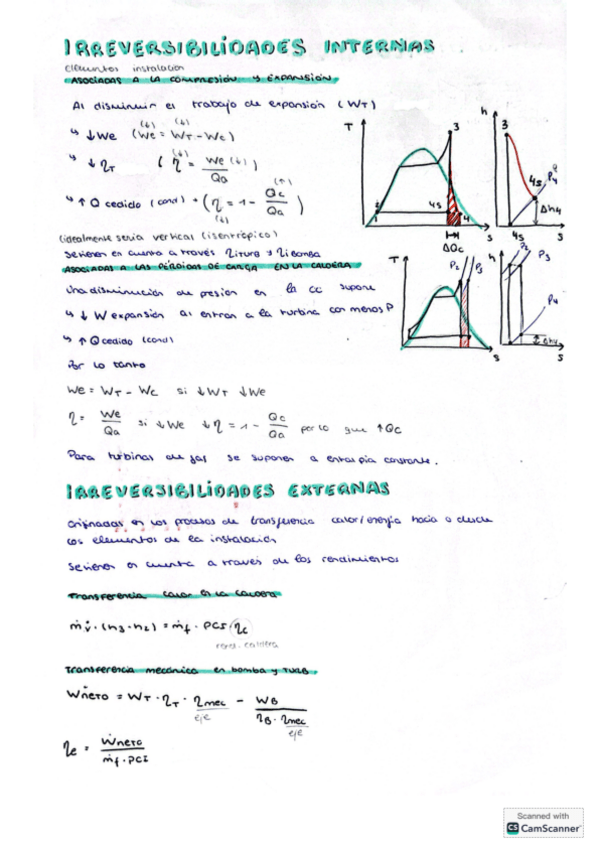 IRREVERSIBILIDADES INTERNAS
Elementos instalación
ASOCIADAS A LA COMPRESIÓN Y EXPANSIÓN
Al disminuir el trabajo de expansión (WT)
↳ ↓We (We = WT - Wc) (↓) (↓)
↳ ↓ηT (η = We (↓) / Qa) (↓)
↳ ↑Q cedido (cond) → (η = 1 - Qc / Qa) (↑) (↓)
(idealmente sería vertical (isentrópico)
Se tienen en cuenta a través ηiturb y ηi bomba
ASOCIADAS A LAS PÉRDIDAS DE CARGA EN LA CALDERA
Una disminución de presión en la CC supone
↳ ↓ W expansión al entran a la turbina con menos P
↳ ↑ Q cedido (cond)
Por lo tanto
We = WT - Wc si ↓WT ↓We
η = We / Qa si ↓We ↓η = 1 - Qc / Qa por lo que ↑Qc
Para turbinas de gas se suponen a entalpia constante.
T
3
4s
4
1
s
ΔQc
h
3
4s
P4
Δh4
4s
s
T
P2
P3
s
h
P2
P3
P4
Δh4
s
IRREVERSIBILIDADES EXTERNAS
Originadas en los procesos de transferencia calor/energía hacia o desde
los elementos de la instalación
Se tienen en cuenta a través de los rendimientos
Transferencia calor en la caldera
ṁv · (h3 - h2) = ṁf · PCI · ηc
rend. caldera
Transferencia mecánica en bomba y TURB.
Ẇneto = WT · ηT · ηmec - WB / ηB · ηmec
eje
eje
ηe = Ẇneto / ṁf · PCI
Scanned with
CS CamScanner